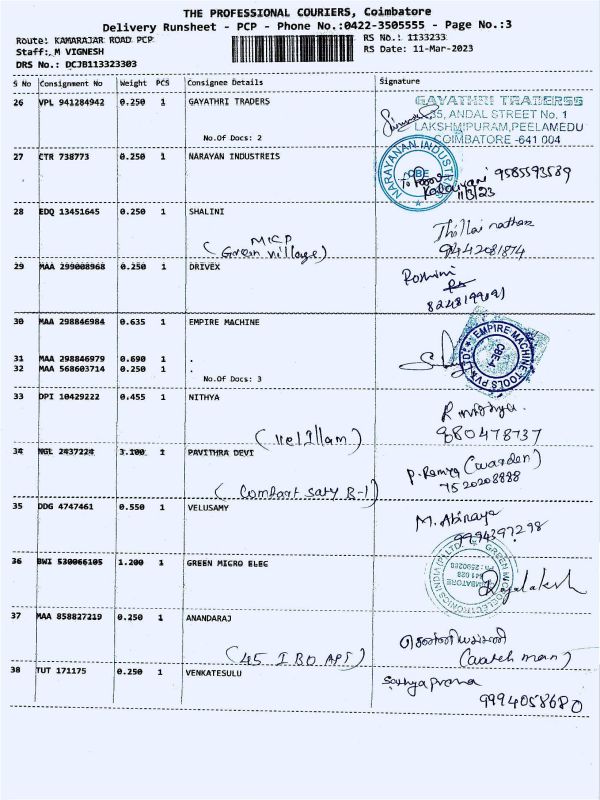 THE PROFESSIONAL COURIERS, Coimbatore
Delivery Runsheet - PCP - Phone No.:0422-3505555 - Page No.:3
Route: KAMARAJAR ROAD PCP
RS No.: 1133233
Staff: M VIGNESH
RS Date: 11-Mar-2023
DRS No.: DCJB113323303
S No Consignment No Weight PCS Consignee Details Signature
26 VPL 941284942 0.250 1 GAYATHRI TRADERS
No.Of Docs: 2
GAYATHRI TRADERSS
35, ANDAL STREET No. 1
LAKSHMIPURAM, PEELAMEDU
COIMBATORE -641 004
27 CTR 738773 0.250 1 NARAYAN INDUSTREIS
NARAYANAN INDUSTRIES
CBE
9585593589
11/3/23
28 EDQ 13451645 0.250 1 SHALINI
MICP
(Green village)
Thillai nathan
9442081874
29 MAA 299008968 0.250 1 DRIVEX
Roshini
8248199091
30 MAA 298846984 0.635 1 EMPIRE MACHINE
31 MAA 298846979 0.690 1 .
32 MAA 568603714 0.250 1 .
No.Of Docs: 3
EMPIRE MACHINE TOOLS PVT. LTD.
CBE-4
33 DPI 10429222 0.455 1 NITHYA
R nithya.
980478737
34 NGL 2437224 3.100 1 PAVITHRA DEVI
(Comfort saty B-1)
P. Ramya (warden)
7520208888
35 DDG 4747461 0.550 1 VELUSAMY
M. Abinaya
9994397298
36 BWI 530066105 1.200 1 GREEN MICRO ELEC
GREEN MICRO ELECTRONICS INDIA (P) LTD
COIMBATORE
641 028
Rajalaksh
37 MAA 858827219 0.250 1 ANANDARAJ
(45 IBO APT)
(watch man)
38 TUT 171175 0.250 1 VENKATESULU
Sathyaprona
9994058680